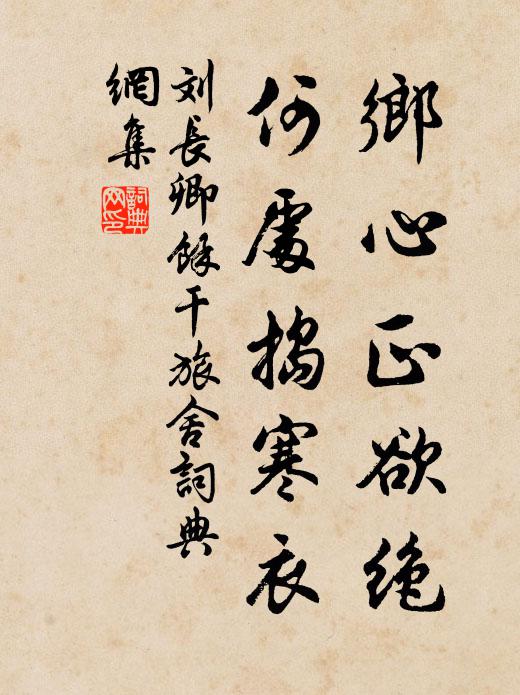 鄉心正欲絶
何處搗寒衣
刘長卿餘干旅舍詞典
網集
詞典
网印